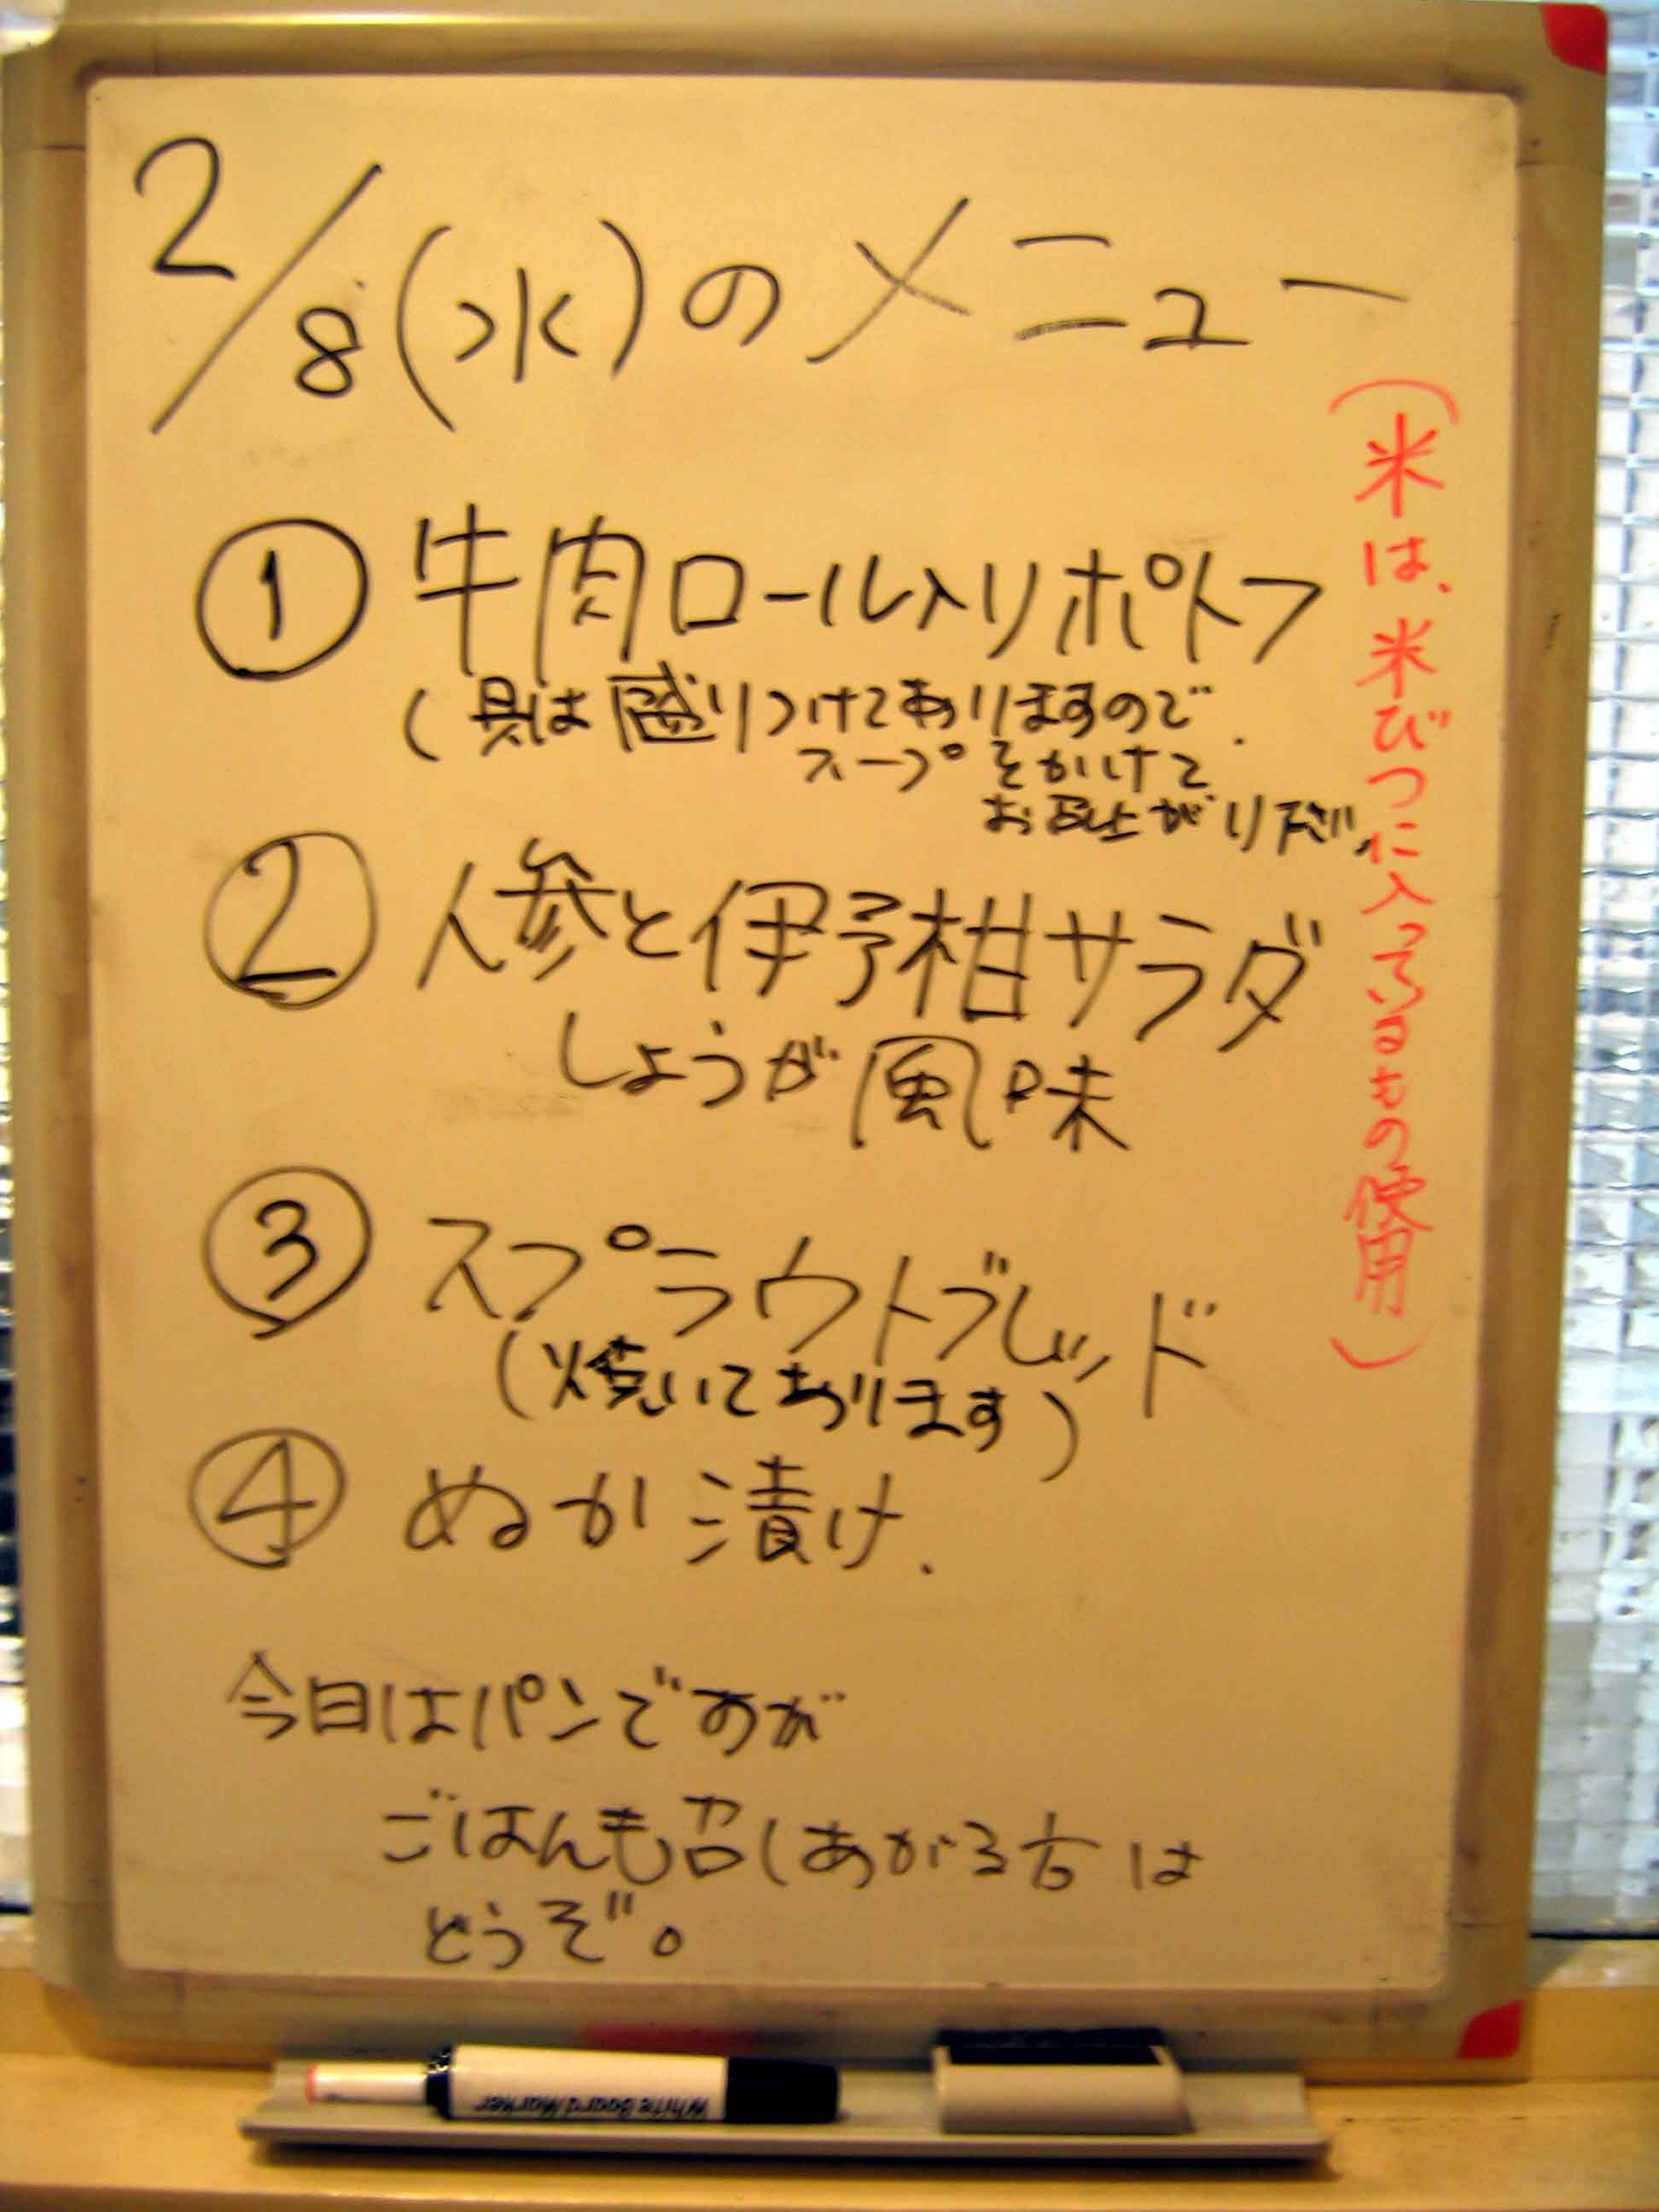 2/8(水)のメニュー
① 牛肉ロール入りポトフ
(具は盛りつけてありますので.
スープをかけて
お召し上がり下さい。
② 人参と伊予柑サラダ
しょうが風味
③ スプラウトブレッド
(焼いております)
④ ぬか漬け.
今日はパンですが
ごはんも召しあがる方は
どうぞ。
(米は、米びつに入っているもの使用)
White Board Marker